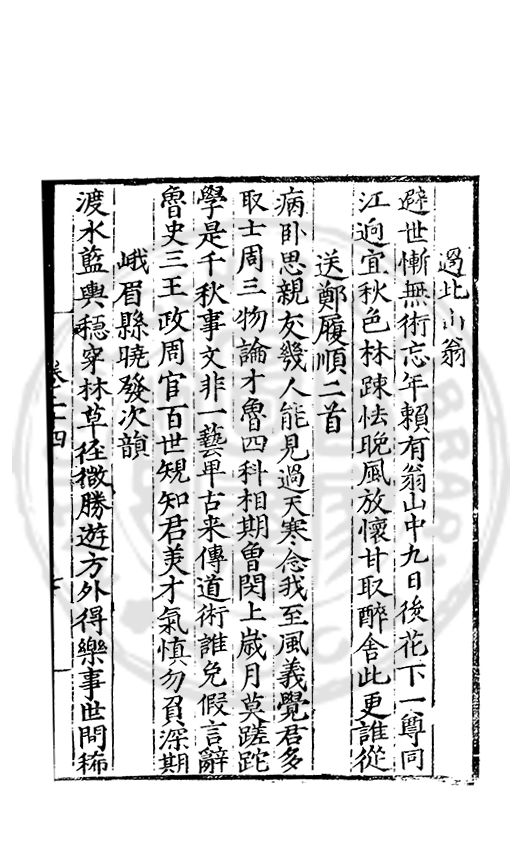 過北山翁
避世慚無術忘年賴有翁山中九日後花下一尊同
江逈宜秋色林踈怯晚風放懷甘取醉舍此更誰從
送鄭履順二首
病卧思親友幾人能見過天寒念我至風義覺君多
取士周三物論才魯四科相期曾閔上歲月莫蹉跎
學是千秋事文非一藝卑古来傳道術誰免假言辭
魯史三王政周官百世規知君美才氣慎勿負深期
峨眉縣曉發次韻
渡水藍輿穩穿林草徑微勝遊方外得樂事世間稀
卷二十四
七